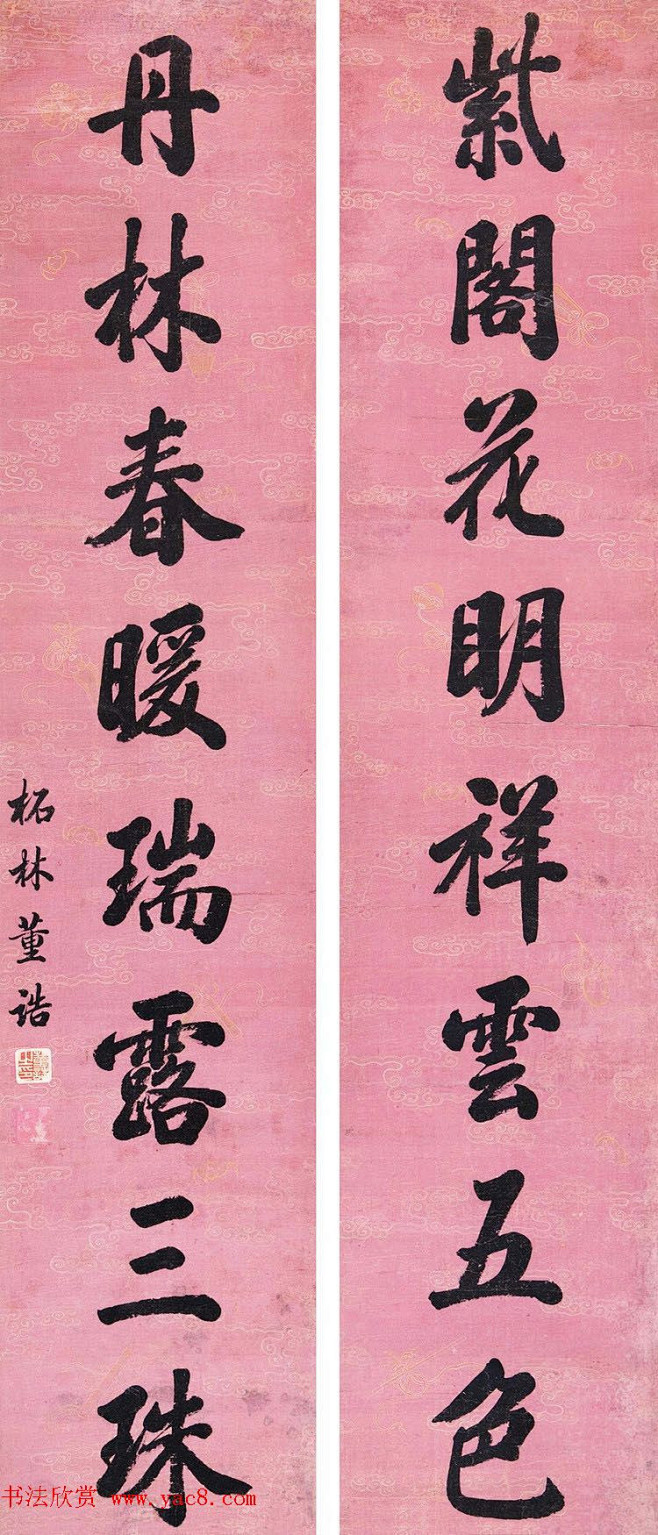 紫閣花明祥雲五色
丹林春暖瑞露三珠
柘林董誥
书法欣赏 www.yac8.com